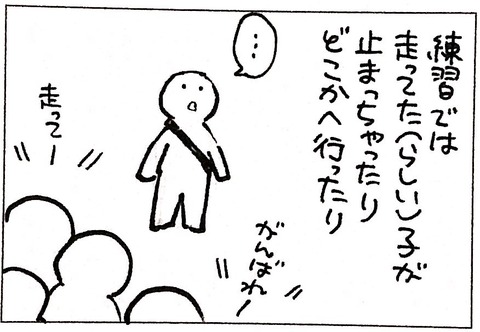 練習では
走ってた(らしい)子が
止まっちゃったり
どこかへ行ったり
…
走ってー
がんばれー